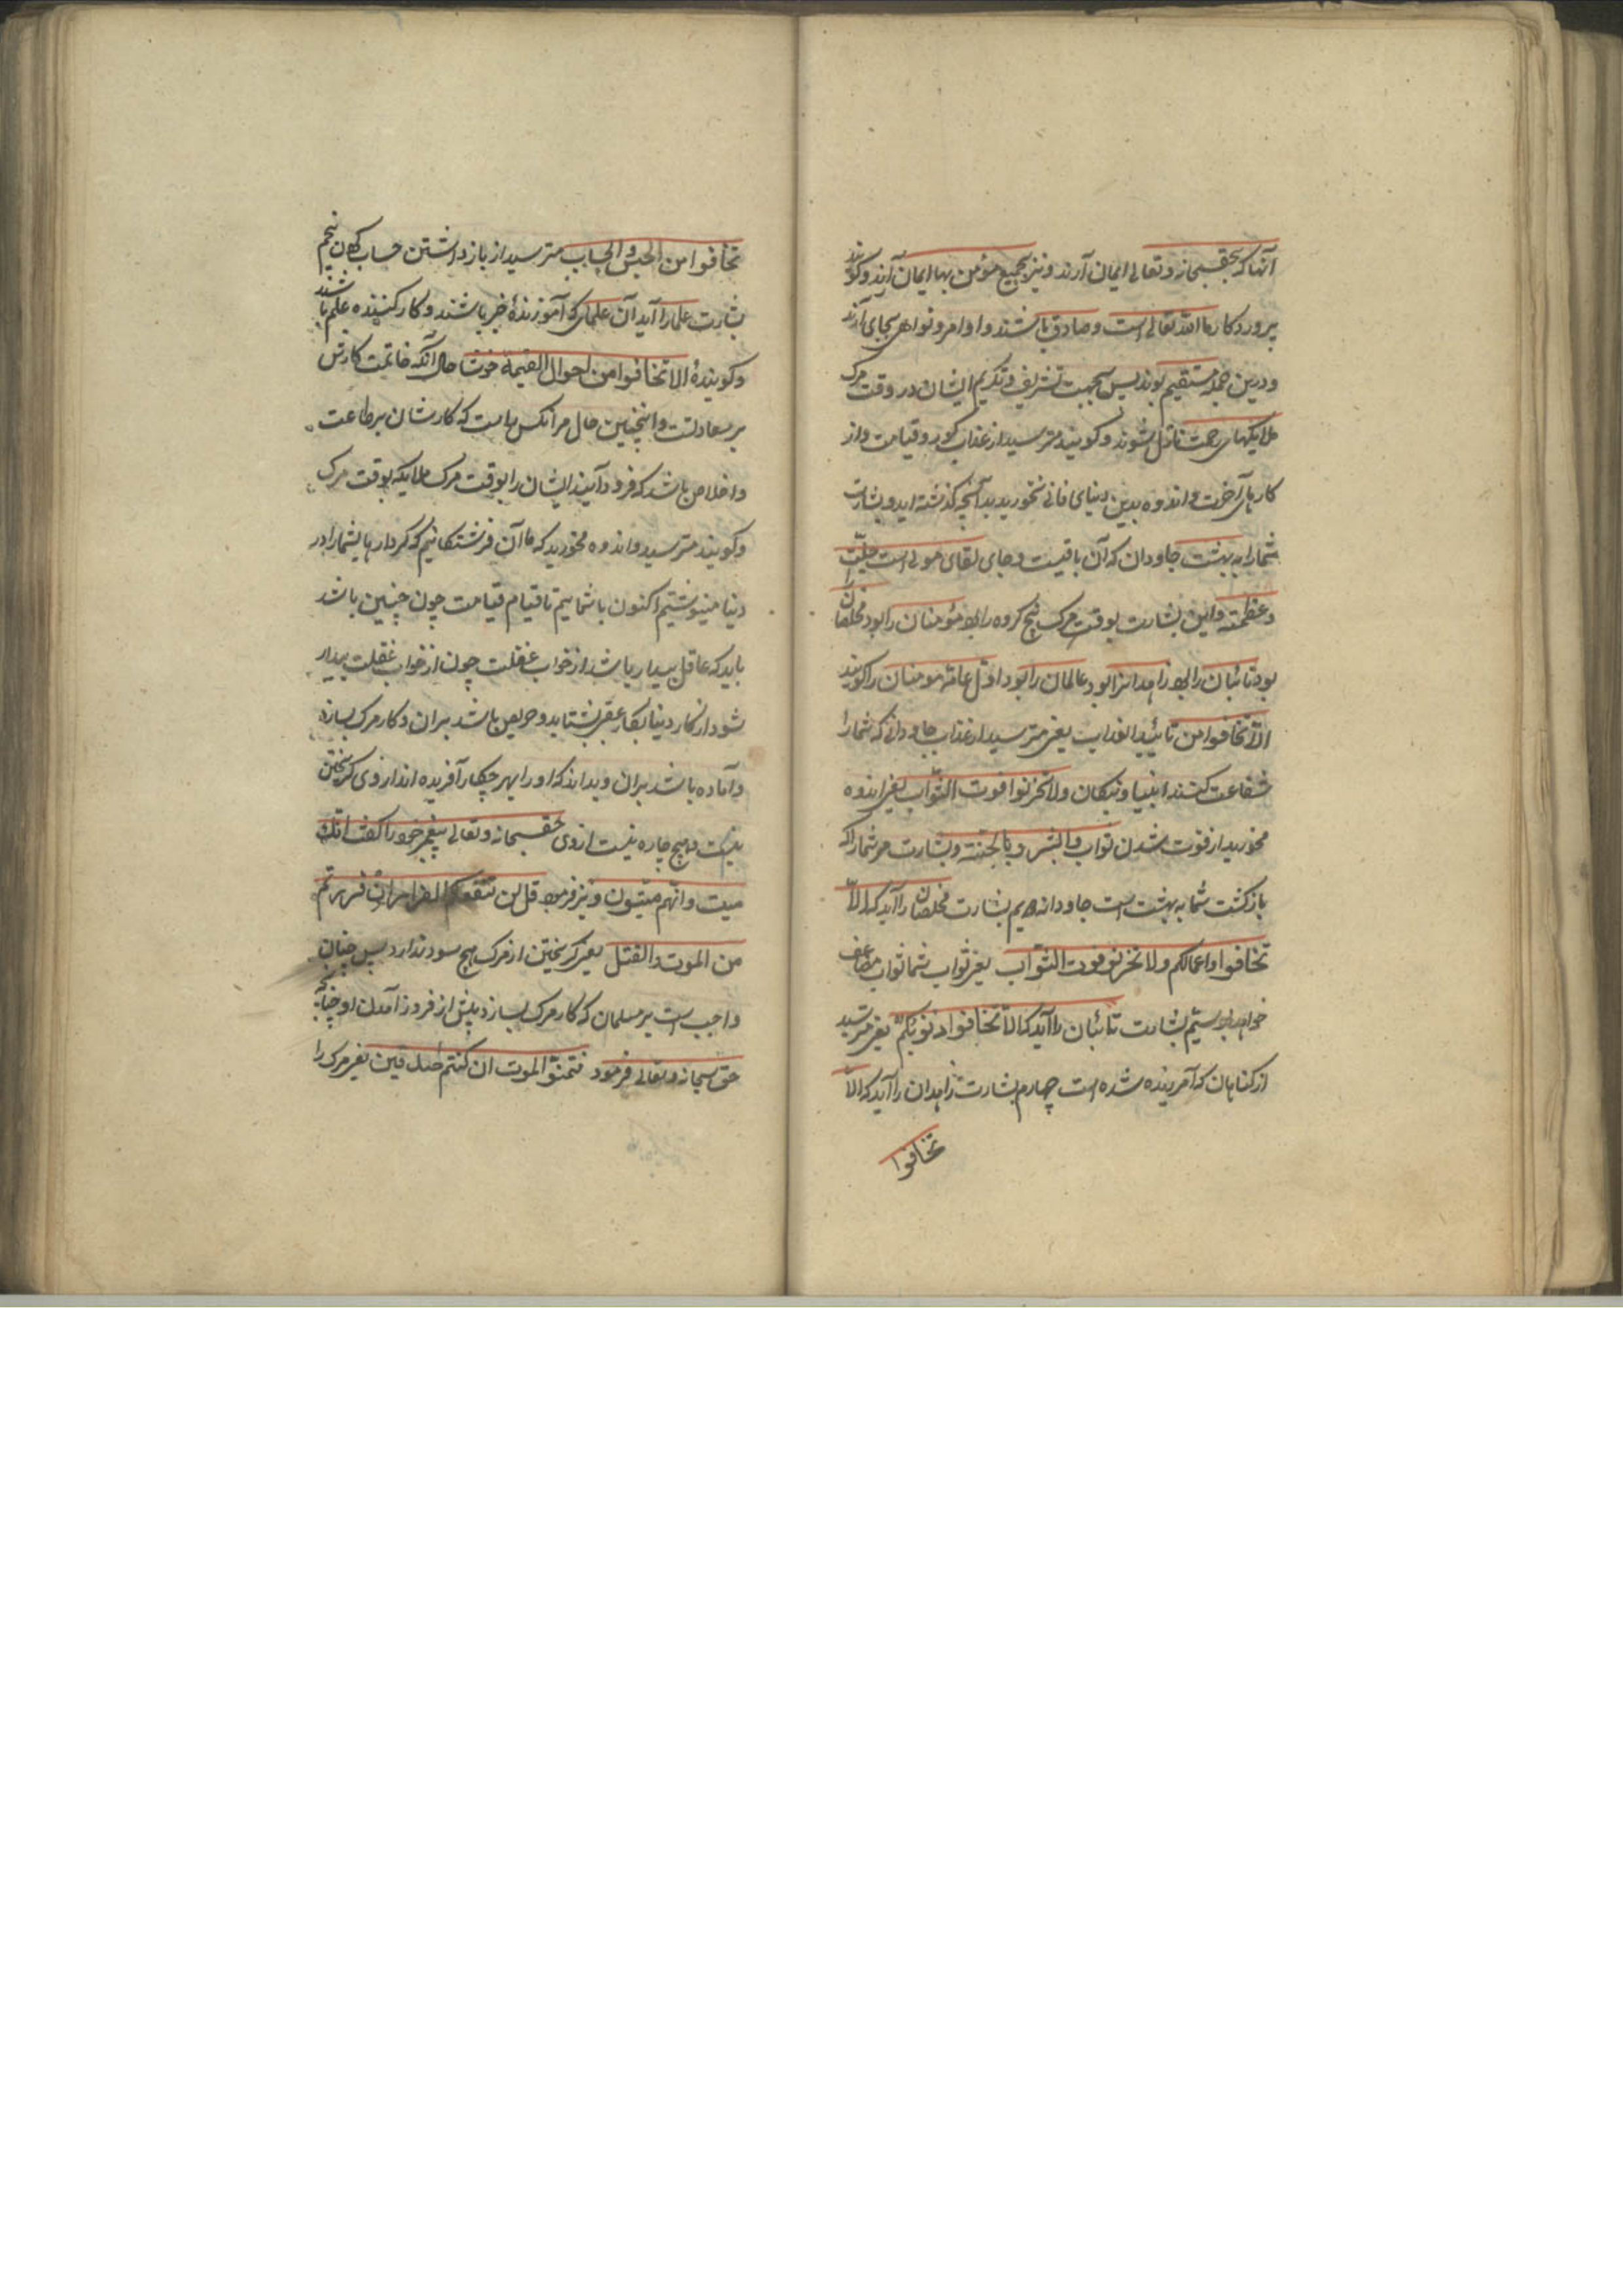 آنها که بحقسبحانه و تعالی ایمان آرند و نیز بجمیع مؤمن بها ایمان آرند و کویند
پروردکار ما الله تعالی است و صادق باشند و اوامر و نواهی بجای آرند
و درین جمله مستقیم بوند پس بجهت تشریف و تکریم ایشان در وقت مرک
ملایکهای رحمت نازل شوند و کویند مترسید از عذاب کور و قیامت و از
کارهای آخرت و اندوه بدین دنیای فانی نخورید بدآنچه کذشته اید و بشارت
شمارا به بهشت جاودان که آن باقیست و جای لقای مولی است جلّت
و عظمته و این بشارت بوقت مرک پنج کروه را بود مؤمنان را بود مخلصان را
بود تائبان را بود زاهدانرا بود عالمان را بود اوّل عامّه مومنان را کویند
الاّ تخافوا من تائید العذاب یعنی مترسید از عذاب جاودانی که شمارا
شفاعت کنند انبیا و نیکان ولا تحزنوا فوت الثواب یعنی اندوه
مخورید از فوت شدن ثواب وابشروا بالجنّة و بشارت مر شمارا که
بازکشت شما به بهشت است جاودانه دویم بشارت مخلصان را آید که الاّ
تخافوا واعمالکم ولا تحزنو فوت الثواب یعنی ثواب شما ثواب مضاعف
خواهد بود سیّم بشارت تائبان را آید که الاّ تخافوا ذنوبکم یعنی مترسید
از کناهان که آمرزیده شده است چهارم بشارت زاهدان را آید که الاّ
تخافوا
تخافوا من الحبس والحساب مترسید از بازداشتن حساب کردن پنجم
بشارت علما را آید آن علمای که آموزندهٔ خیر باشند و کار کننده علم باشند
و کویند الا تخافوا من احوال القیمة خوشا حال آنکه خاتمت کارش
بر سعادتست و اینچنین حال مر آنکس راست که کارشان بر طاعت
و اخلاص باشد که فرود آیند ایشان را بوقت مرک ملایکه بوقت مرک
و کویند مترسید و اندوه مخورید که ما آن فرشتکانیم که کردارهای شمارا در
دنیا مینوشتیم اکنون با شماییم تا قیام قیامت چون چنین باشد
باید که عاقل بیدار باشد از خواب غفلت چون از خواب غفلت بیدار
شود از کار دنیا بکار عقبی بشتابد و حریص باشد بران و کار مرک بسازد
و آماده باشد بران و بداند که او را بهر چکار آفریده اند از وی کریختن
نیست و هیچ چاره نیست از وی حقسبحانه و تعالی پیغمبر خود را کفت انّک
میت وانّهم میّتون و نیز فرمود قل لن ینفعکم الفرار ان فررتم
من الموت والقتل یعنی کریختن از مرک هیچ سود ندارد پس چنان
واجب است بر مسلمان که کار مرک بسازد پیش از فرود آمدن او چنانچه
حق سبحانه و تعالی فرمود فتمنّوا الموت ان کنتم صادقین یعنی مرک را